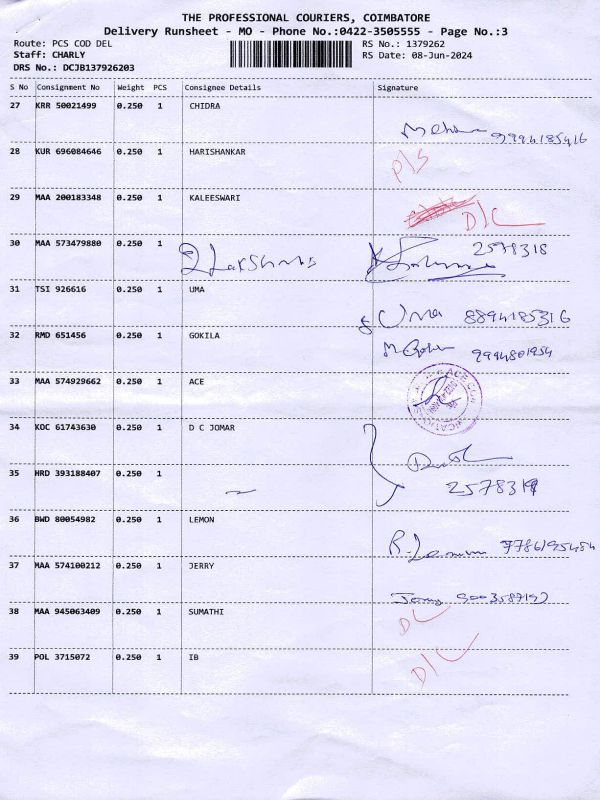 THE PROFESSIONAL COURIERS, COIMBATORE
Delivery Runsheet - MO - Phone No.:0422-3505555 - Page No.:3
Route: PCS COD DEL
RS No.: 1379262
Staff: CHARLY
RS Date: 08-Jun-2024
DRS No.: DCJB137926203
S No Consignment No Weight PCS Consignee Details Signature
27 KRR 50021499 0.250 1 CHIDRA
9994185416
28 KUR 696084646 0.250 1 HARISHANKAR
P/S
29 MAA 200183348 0.250 1 KALEESWARI
D/C
30 MAA 573479880 0.250 1 2578318
31 TSI 926616 0.250 1 UMA
Uma 8894185316
32 RMD 651456 0.250 1 GOKILA
9994801954
33 MAA 574929662 0.250 1 ACE
34 KOC 61743630 0.250 1 D C JOMAR
35 HRD 393188407 0.250 1
36 BWD 80054982 0.250 1 LEMON
37 MAA 574100212 0.250 1 JERRY
Jerry
38 MAA 945063409 0.250 1 SUMATHI
DC
39 POL 3715072 0.250 1 IB
D/C